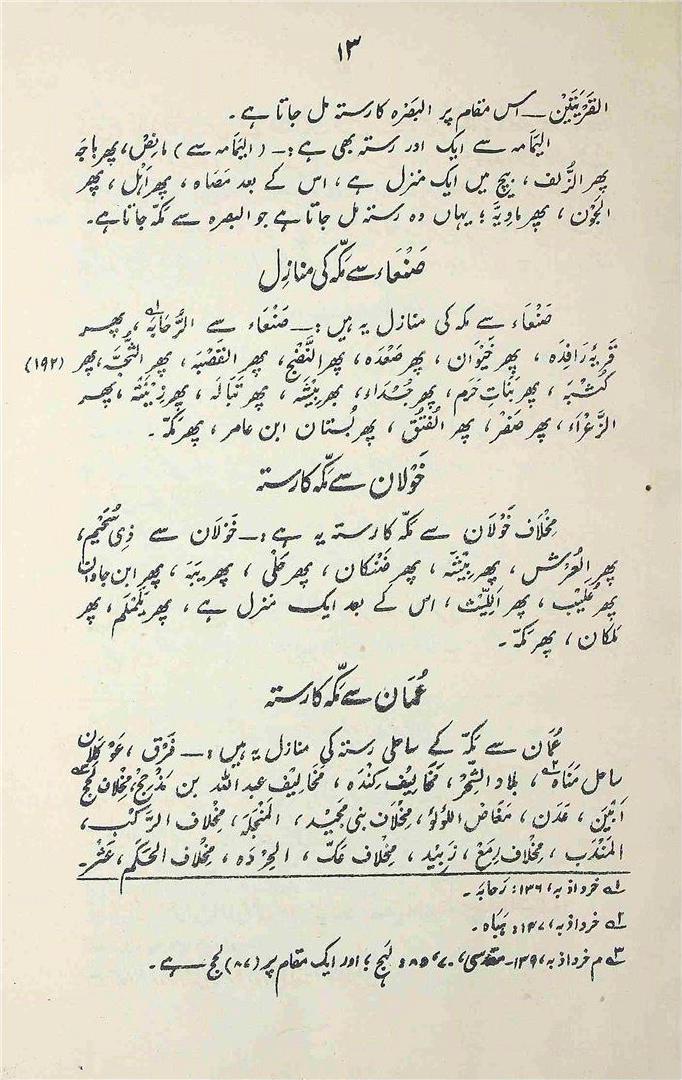 ۱۳
القَریَتَین — اس مقام پر البصرہ کا رستہ مل جاتا ہے۔
الیمَامہ سے ایک اور رستہ بھی ہے :— (الیمامہ سے) مانِض، پھر باجَہ
پھر الزُّلف، بیچ میں ایک منزل ہے، اس کے بعد مَصَاہ، پھر اَہْل، پھر
الجَوْن، پھر مَاوِیَّہ؛ یہاں وہ رستہ مل جاتا ہے جو البصرہ سے مکّہ جاتا ہے۔
صَنْعَاء سے مکّہ کی منازل
صَنْعَاء سے مکہ کی منازل یہ ہیں :— صَنْعَاء سے الرُّحَابَہ۱؎، پھر
قَریَۂ رَافِدَہ، پھر خَیْوَان، پھر صَعْدَہ، پھر النَّضْح، پھر القَصَبَہ، پھر الثُّجَّہ، پھر (۱۹۲)
کُشُبَہ، پھر بَنَاتِ حَرَم، پھر جُسْدَاء، پھر بِیْشَہ، پھر تَبَالَہ، پھر رَنْیَہ، پھر
الزَّعْرَاء، پھر صَفْر، پھر الفُتُق، پھر بُستان ابن عامر، پھر مَکّہ۔
خَوْلان سے مکّہ کا رستہ
مِخْلَاف خَوْلَان سے مکّہ کا رستہ یہ ہے :— خَوْلَان سے ذِی سُحَیْم،
پھر العُرْش، پھر بِیْشَہ، پھر ضَنْکَان، پھر حَلْی، پھر یبَہ، پھر ابن جاوان
پھر عُلَیْب، پھر اَللِّیْث، اس کے بعد ایک منزل ہے، پھر یَلَمْلَم، پھر
مَلکان، پھر مَکّہ۔
عُمَان سے مکّہ کا رستہ
عُمَان سے مکّہ کے ساحلی رستہ کی منازل یہ ہیں :— فَرْق، عَوْکَلَان
ساحل مَنَاہ۲؎، بلاد الشِّحْر، مَخَالِیف کِنْدَہ، مَخَالِیْف عبداللہ بن مَذْحِج، مِخْلَاف لَحج۳؎
اَبْیَن، عَدَن، مَغَاض اللُّؤلُؤ، مِخْلَاف بنی مَجِید، المَنْجِلَہ، مِخْلَاف الرَّکْب،
المَنْدَب، مِخْلَاف رِمَع، زَبِیْد، مِخْلَاف عَکّ، الحِرْدَہ، مِخْلَاف الحَکَم، عَثْر۔
۱؎ خرداذبہ، ۱۳۶ : رَحَابَہ۔
۲؎ خرداذبہ، ۱۴۷ : ہَبَاہ۔
۳؎ م خرداذبہ، ۱۳۹۔ مقدسی، ۷۰، ۸۵ : لَحَج؛ اور ایک مقام پر (۸۷) لحج ہے۔